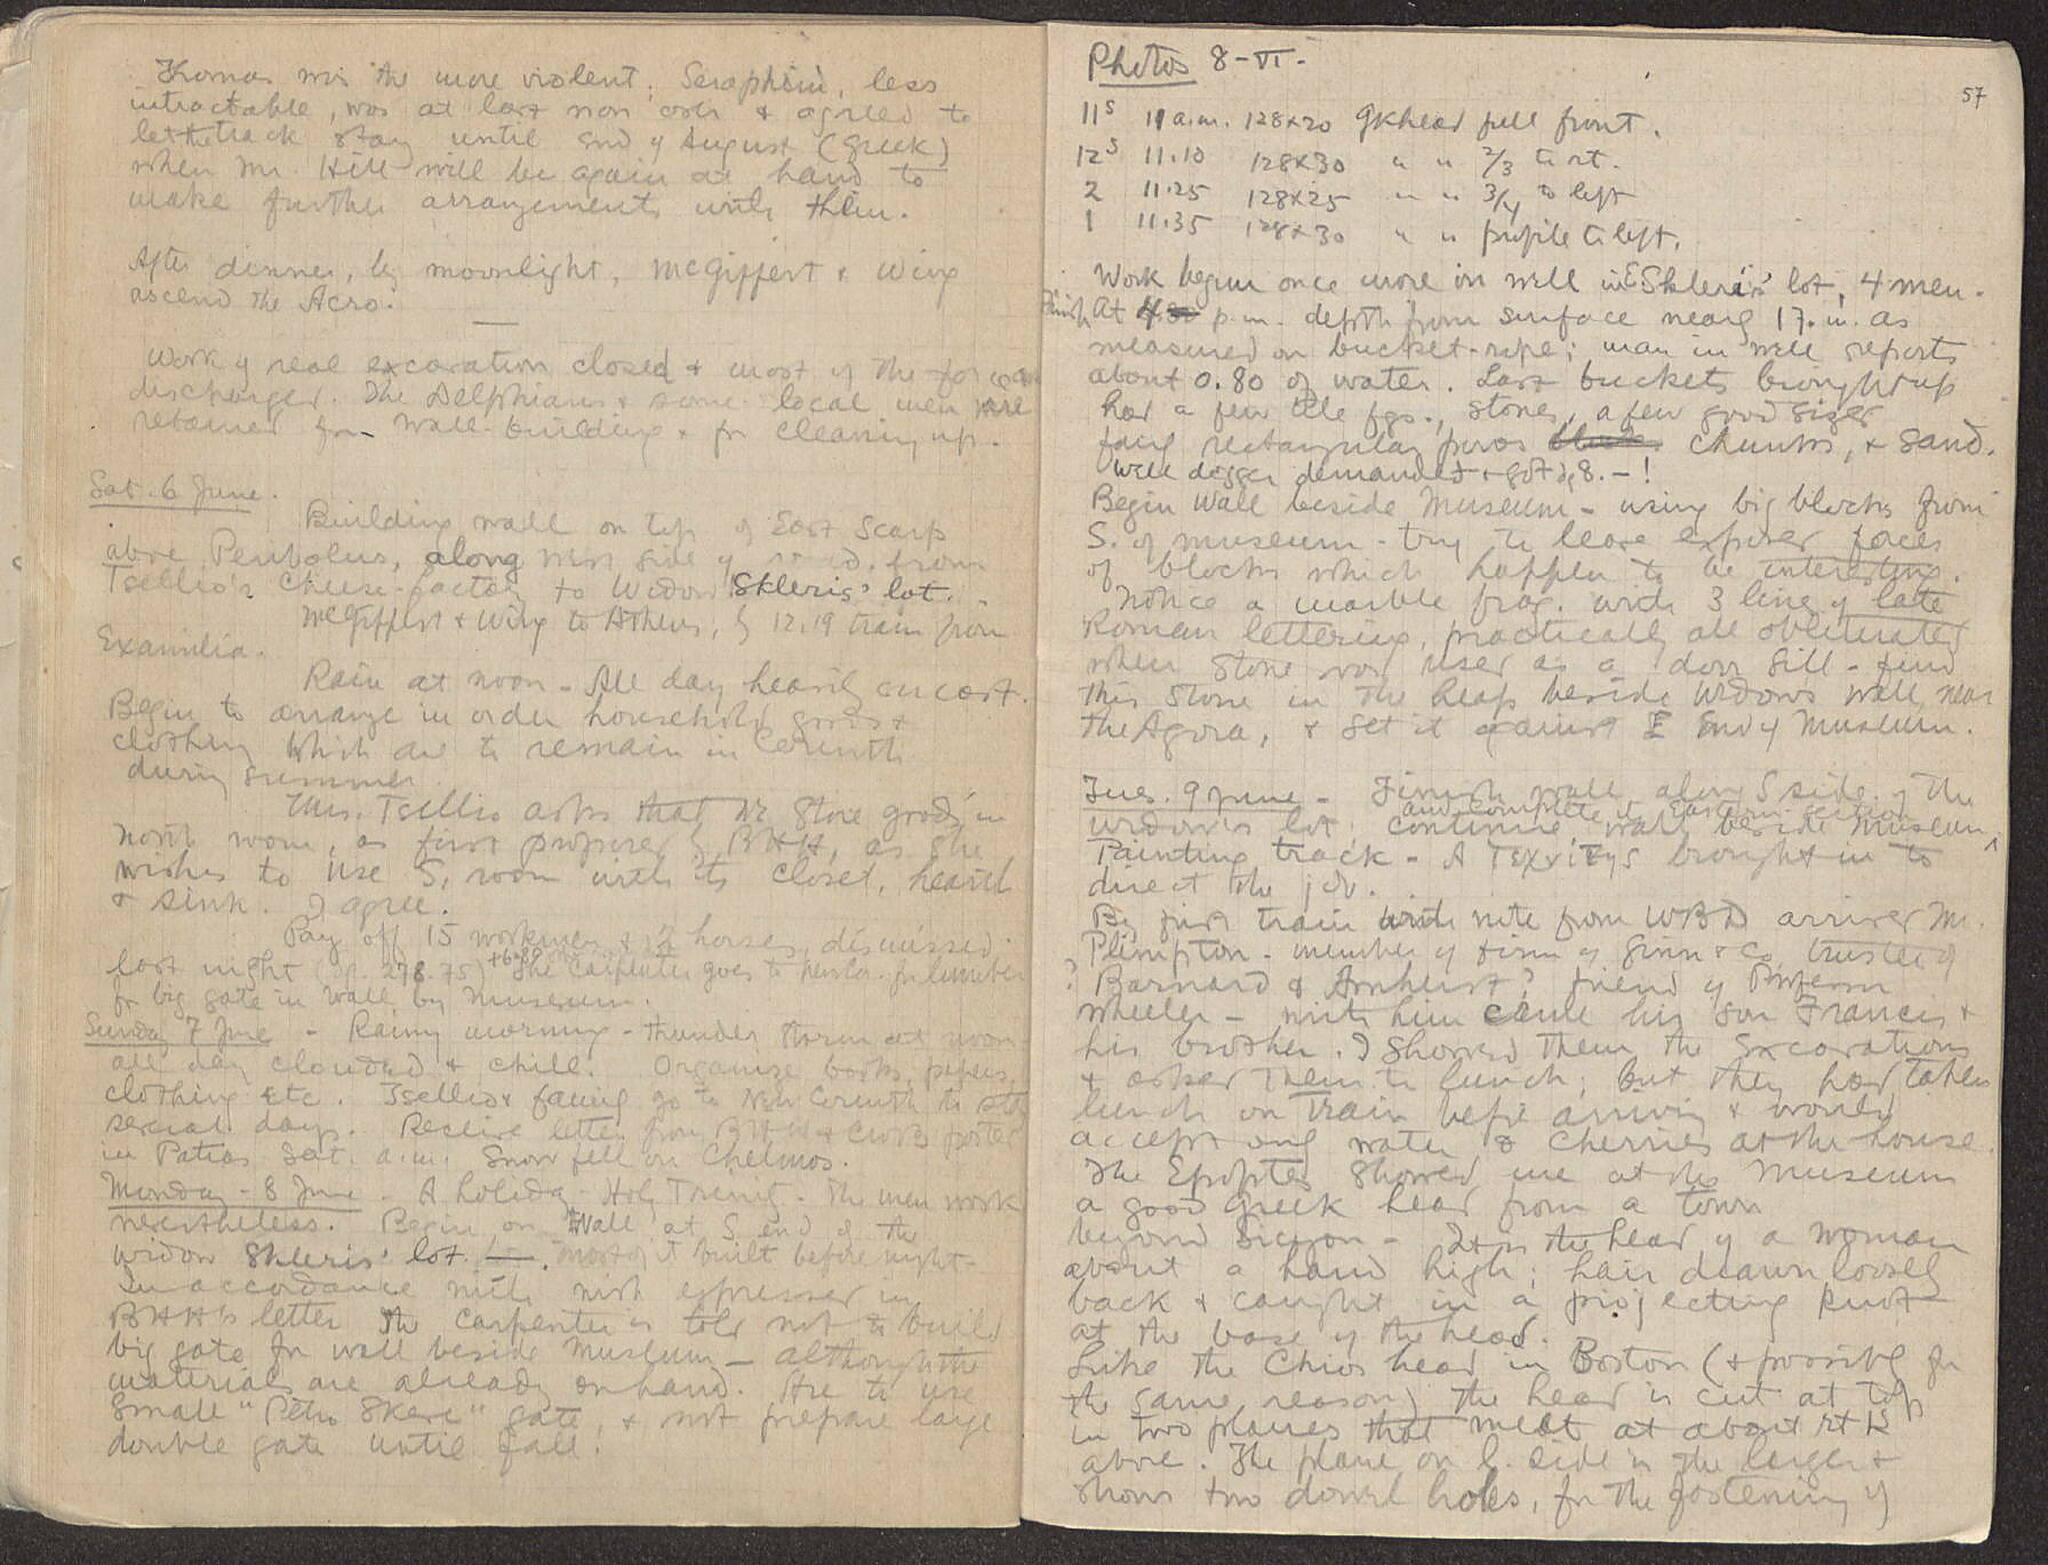 Thomas was the more violent; Seraphim, less
intractable, was at last won over & agreed to
let the track stay until end of August (Greek)
when Mr. Hill will be again at hand to
make further arrangements with them.
After dinner, by moonlight, McGiffert & Wing
ascend the Acro.
Work of real excavation closed & most of the
discharged. The Delphians & some local men were
retained for wall-building & for cleaning up.
Sat. 6 June.
Building wall on top of East Scarp
above Peribolus, along west side of road, from
Tsellio's Cheese-factory to Widow Skleris' lot.
McGiffert & Wing to Athens, by 12.19 train from
Examilia.
Rain at noon - All day heavily overcast.
Begin to arrange in order household goods &
clothing which are to remain in Corinth
during summer.
Mrs. Tsellio asks that we store goods in
North room, as first proposed by BHH, as she
wishes to use S. room with its closet, hearth
& sink. I agree.
Pay off 15 workmen & 2 horses, dismissed
last night (dr. 278.75) The Carpenter goes to for lumber
for big gate in wall by Museum.
Sunday 7 June - Rainy morning - thunder storm at noon
all day clouded & chill. Organize books, papers,
clothing etc. Tsellios family go to New Corinth to stay
several days. Receive letter from BHH & CWB posted
in Patras Sat. a.m. Snow fell on Chelmos.
Monday - 8 June - A holiday - Holy Trinity. The men work
nevertheless. Begin on wall at S. end of the
widow Skleris' lot. most of it built before night -
In accordance with wish expressed in
BHH's letter the Carpenter is told not to build
big gate for wall beside Museum - although the
materials are already on hand. Are to use
small "Petro Skeri" gate, & not prepare large
double gate until fall.
Photos 8-VI-
57
11s 11 a.m. 128x20 Gk head full front.
12s 11.10 128x30 " " 2/3 to rt.
2 11.25 128x25 " " 3/4 to left
1 11.35 128x30 " " profile to left.
Work begun once more on well in E Skleris' lot, 4 men.
Finish At 4.30 p.m. depth from surface nearly 17. m. as
measured on bucket-rope; man in well reports
about 0.80 of water. Last buckets brought up
had a few tile fgs., stones, a few good sized
fairly rectangular poros blocks chunks, & sand.
Well digger demanded & got dr 8. - !
Begin Wall beside Museum - using big blocks from
S. of museum - try to leave exposed faces
of blocks which happen to be interesting.
Notice a marble frag. with 3 lines of late
Roman lettering, practically all obliterated
when stone was used as a door sill - find
this stone in the heap beside widow's well, near
the Agora, & set it against E End of Museum.
Tues. 9 June - Finish wall along S side of the
and complete its Eastern section
widow's lot; continue wall beside museum ^
Painting track - A τεχνίτης brought in to
direct the job.
By first train with note from WBD arrives Mr.
Plimpton - member of firm of Ginn & Co. trustee of
? Barnard & Amherst? friend of Professor
Wheeler - with him came his son Francis &
his brother. I showed them the Excavations
& asked them to lunch; but they had taken
lunch on train before arriving & would
accept only water & cherries at the house.
The Epoptes showed me at the Museum
a good Greek head from a town
beyond Sicyon - It is the head of a woman
about a hand high; hair drawn loosely
back & caught in a projecting knot
at the base of the head.
Like the Chios head in Boston (& possibly for
the same reason) the head is cut at top
in two planes that meet at about rt ∠s
above. The plane on l. side is the larger &
shows two dowel holes, for the fastening of